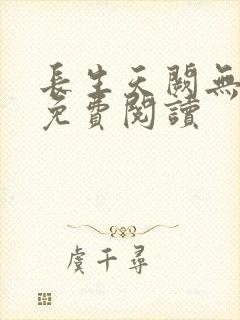 長生天闕無
免費閱讀
虞千尋